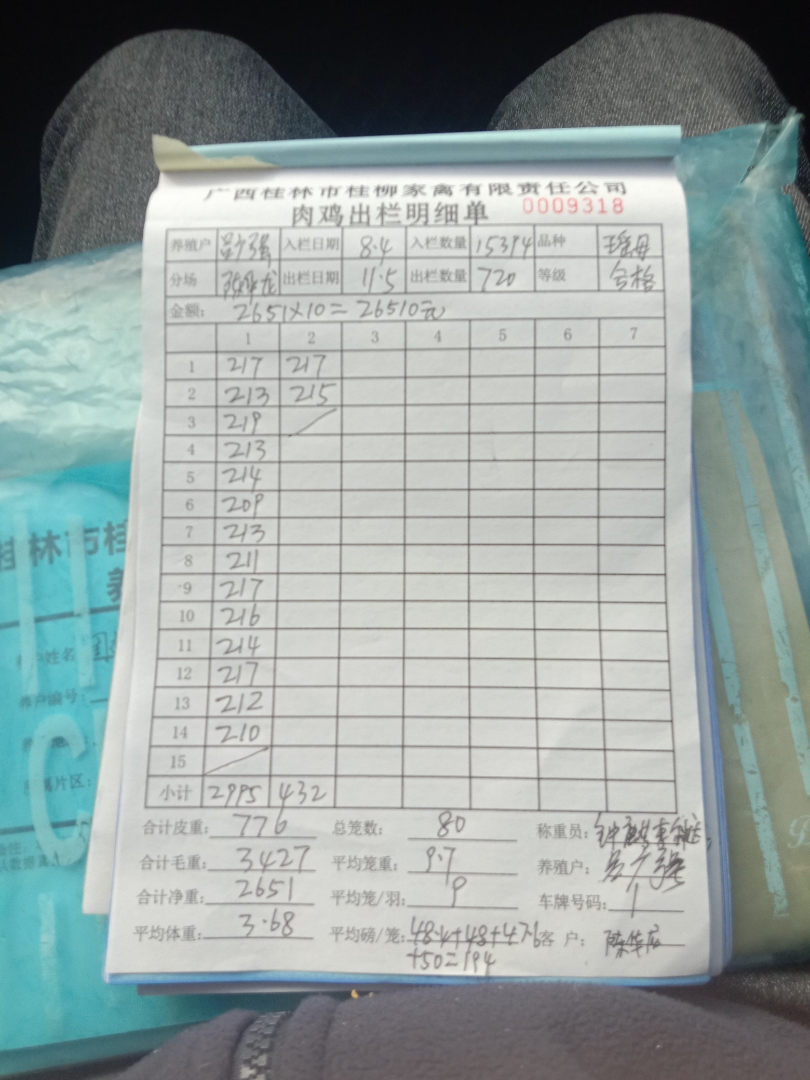 广西桂林市桂柳家禽有限责任公司
肉鸡出栏明细单 0009318
养殖户 入栏日期 8.4 入栏数量 15394 品种 瑶母
分场 出栏日期 11.5 出栏数量 720 等级 合格
金额: 2651×10=26510元
1 2 3 4 5 6 7
1 217 217
2 213 215
3 219
4 213
5 214
6 209
7 213
8 211
9 217
10 216
11 214
12 217
13 212
14 210
15
小计 2995 432
合计皮重: 776 总笼数: 80 称重员:
合计毛重: 3427 平均笼重: 9.7 养殖户:
合计净重: 2651 平均笼/羽: 9 车牌号码:
平均体重: 3.68 平均磅/笼: 48.4+48+47.6 客 户:
+50=194
桂林市桂
养
姓名
养户编号:
属片区: